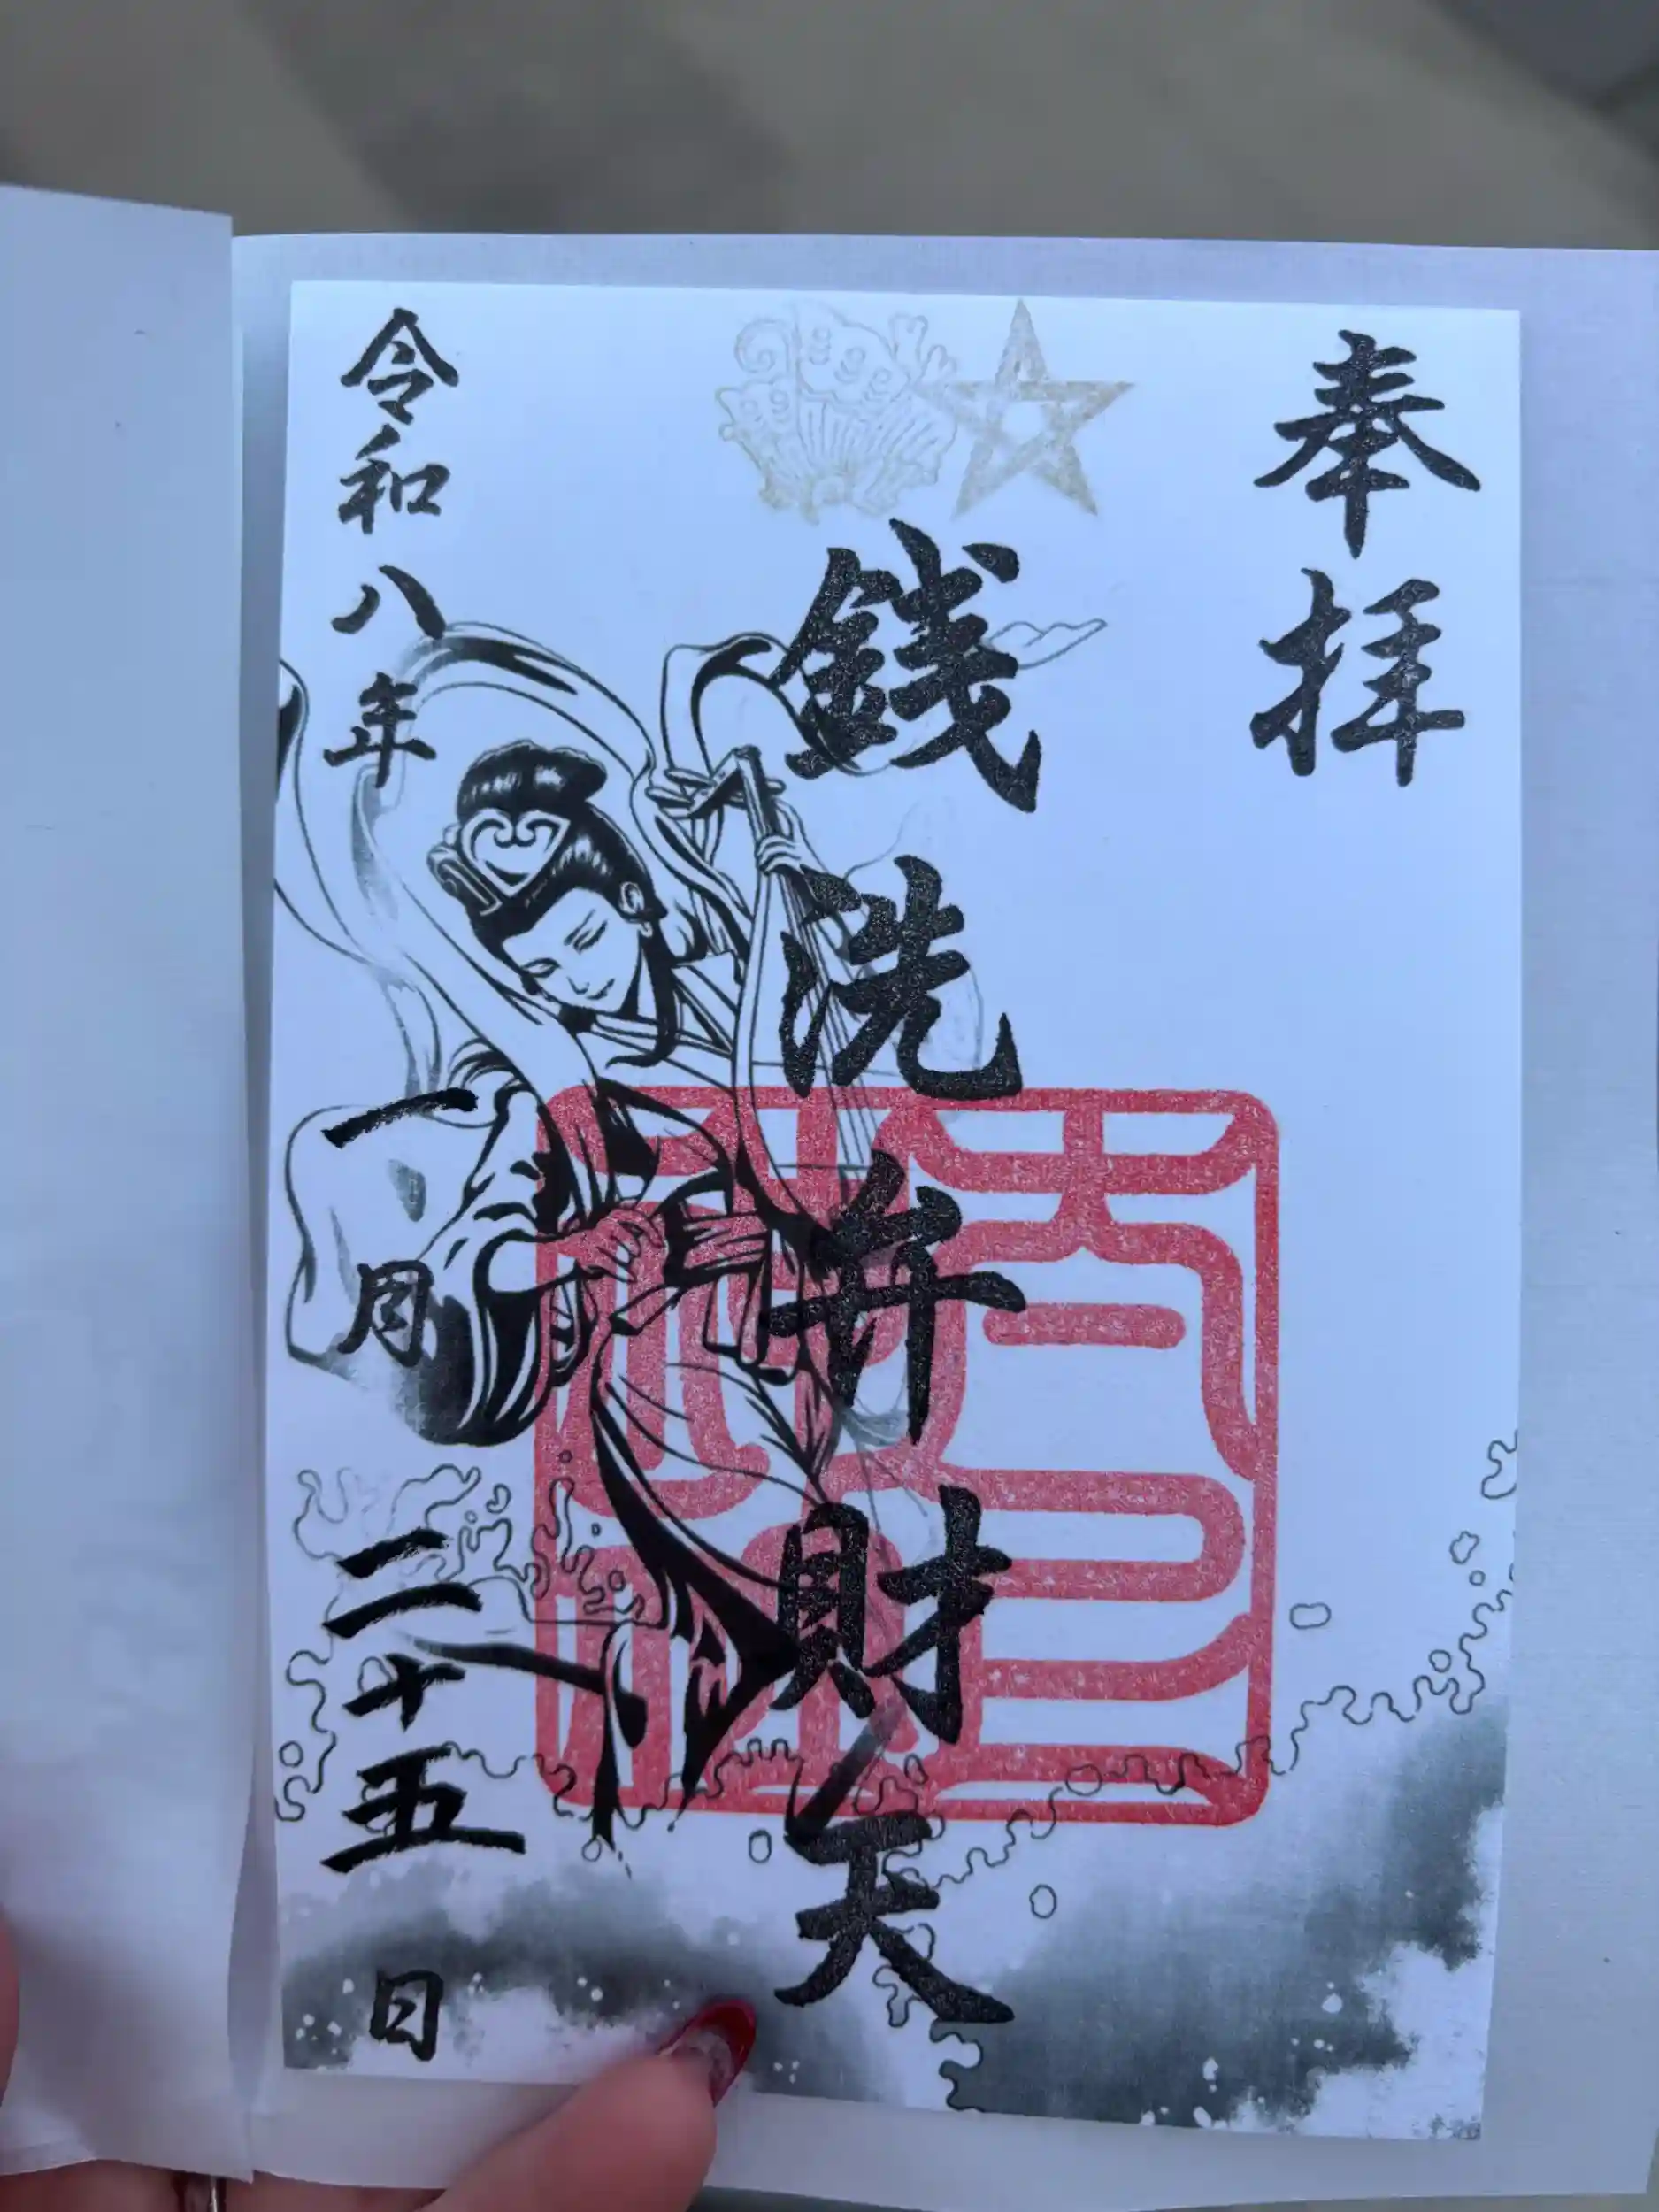 奉拝
銭洗弁財天
令和八年一月二十五日